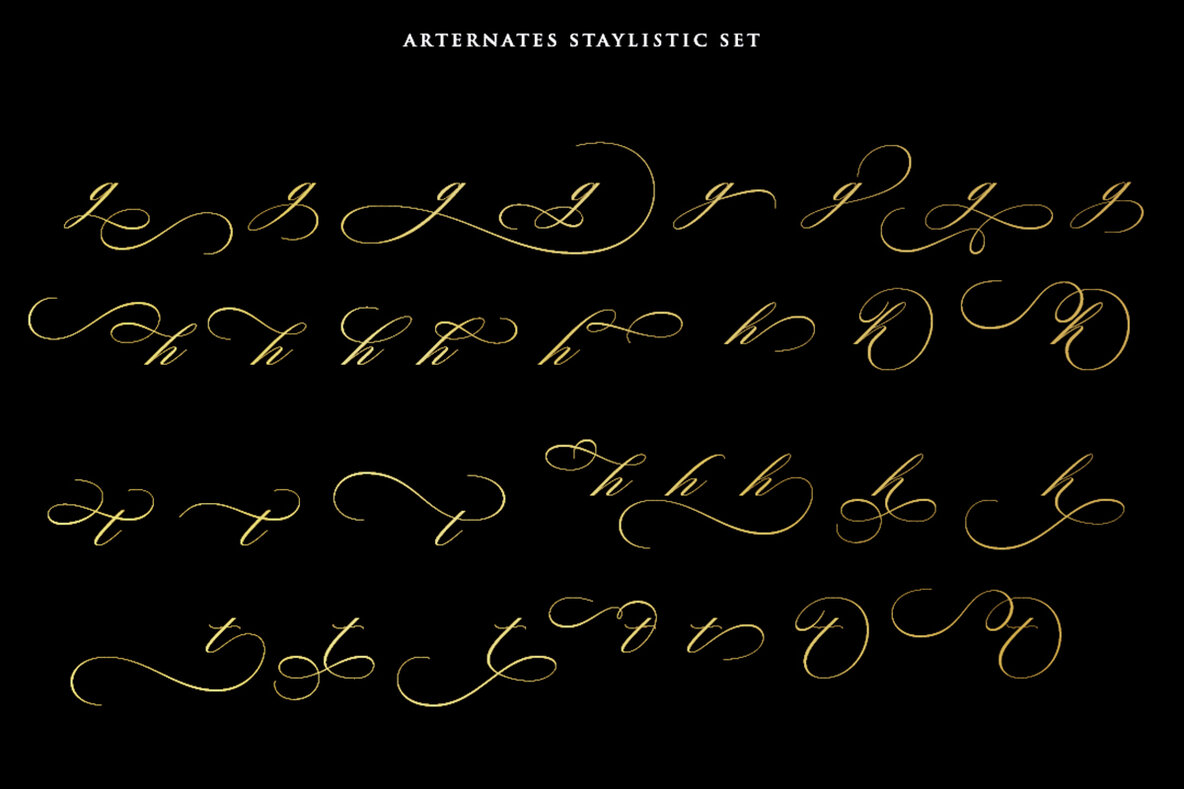 ARTERNATES STAYLISTIC SET
g g g g g g g g
h h h h h h h h
t t t h h h h h
t t t t t t t